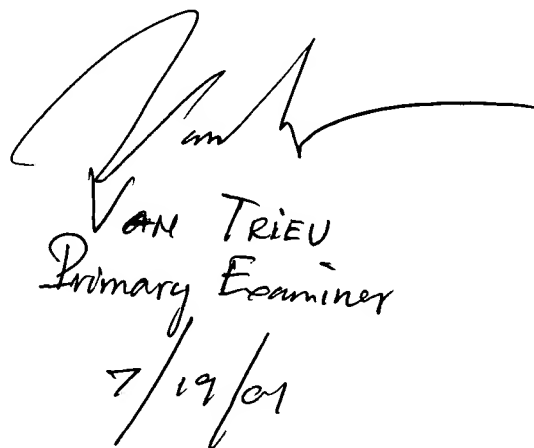 Van
VAN TRIEU
Primary Examiner
7/19/01